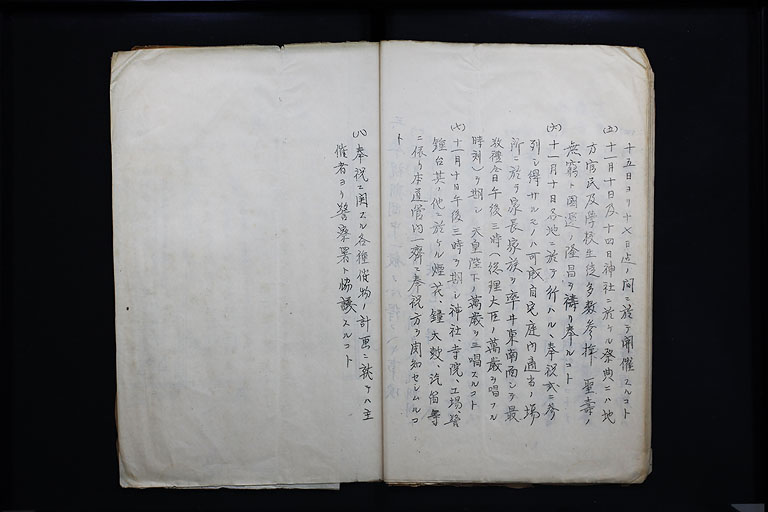 十五日ヨリ十七日迄ノ間ニ於テ開催スルコト
(五)十一月十日及十四日神社ニ於ケル祭典ニハ地
方官民及學校生徒多数参拝 聖壽ノ
無窮ト國運ノ隆昌ヲ祷リ奉ルコト
(六)十一月十日各地ニ於テ行ハルヽ奉祝式ニ参
列シ得サルモノハ可成自宅庭内適當ノ場
所ニ於テ家長家族ヲ率ヰ東南面シテ最
敬禮仝日午後三時(総理大臣ノ萬歳ヲ唱フル
時刻)ヲ期シ 天皇陛下ノ萬歳ヲ三唱スルコト
(七)十一月十日午後三時ヲ期シ神社、寺院、工場、警
鐘台其ノ他ニ於ケル煙花、鐘、太鼓、汽笛等
ニ依リ本道管内一齊ニ奉祝方ヲ周知セシムルコ
ト
(八)奉祝ニ関スル各種催物ノ計画ニ就テハ主
催者ヨリ警察署ト協議スルコト